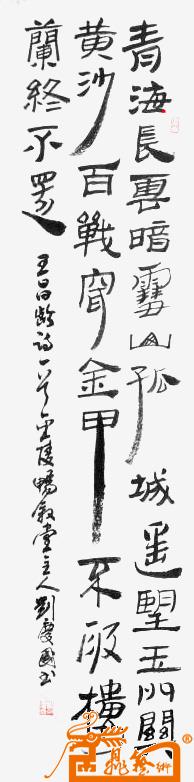 青海長雲暗雪山孤城遥望玉門關
黄沙百戰穿金甲不破樓
蘭終不還
王昌齡詩一首金陵暢叙堂主人劉慶國书